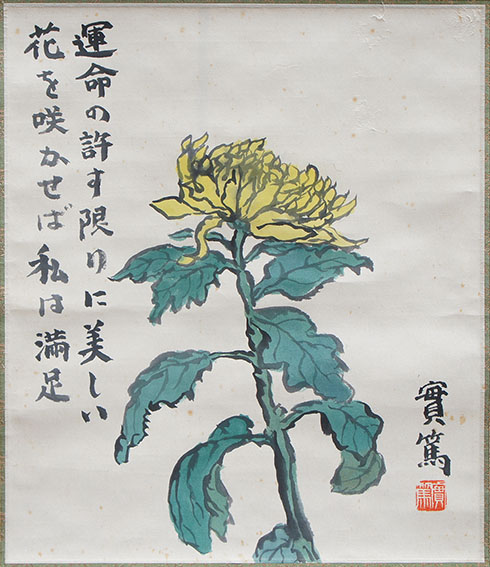 運命の許す限りに美しい
花を咲かせば私は満足
實篤
實篤